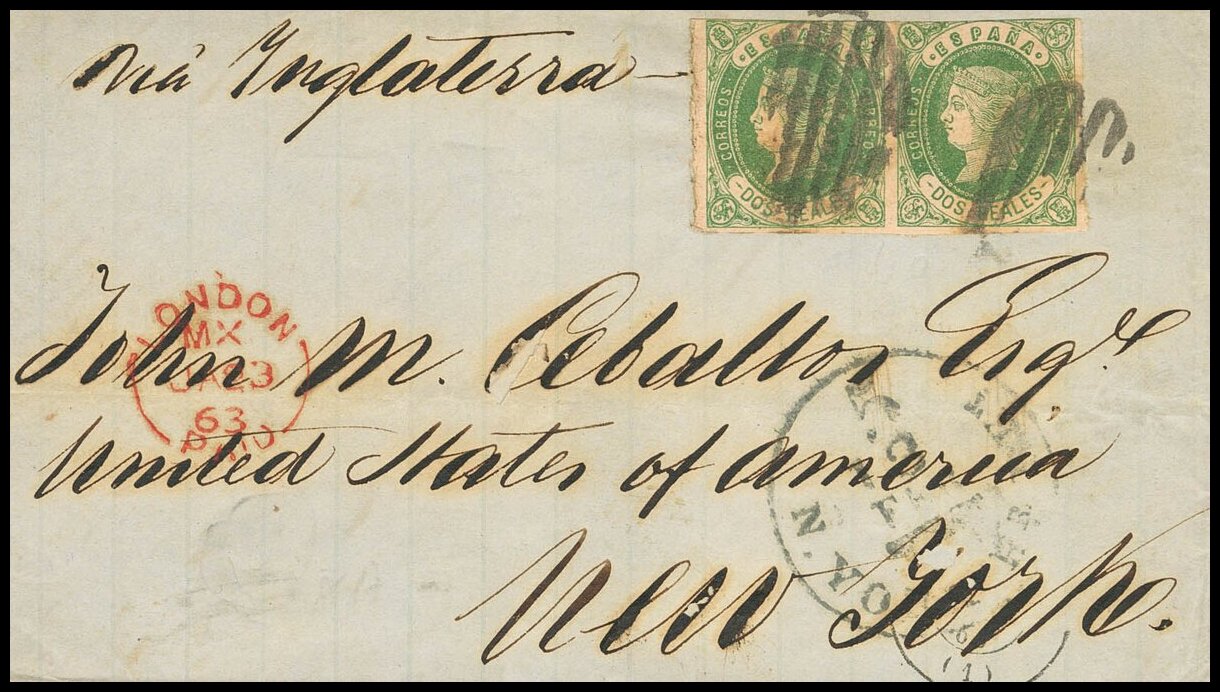 Viá Inglaterra
ESPAÑA
CORREOS
DOS REALES
ESPAÑA
CORREOS
DOS REALES
LONDON
MX
JA 23
63
PAID
John M. Ceballos Esqre
United States of America
New York.
N. YORK
(1)